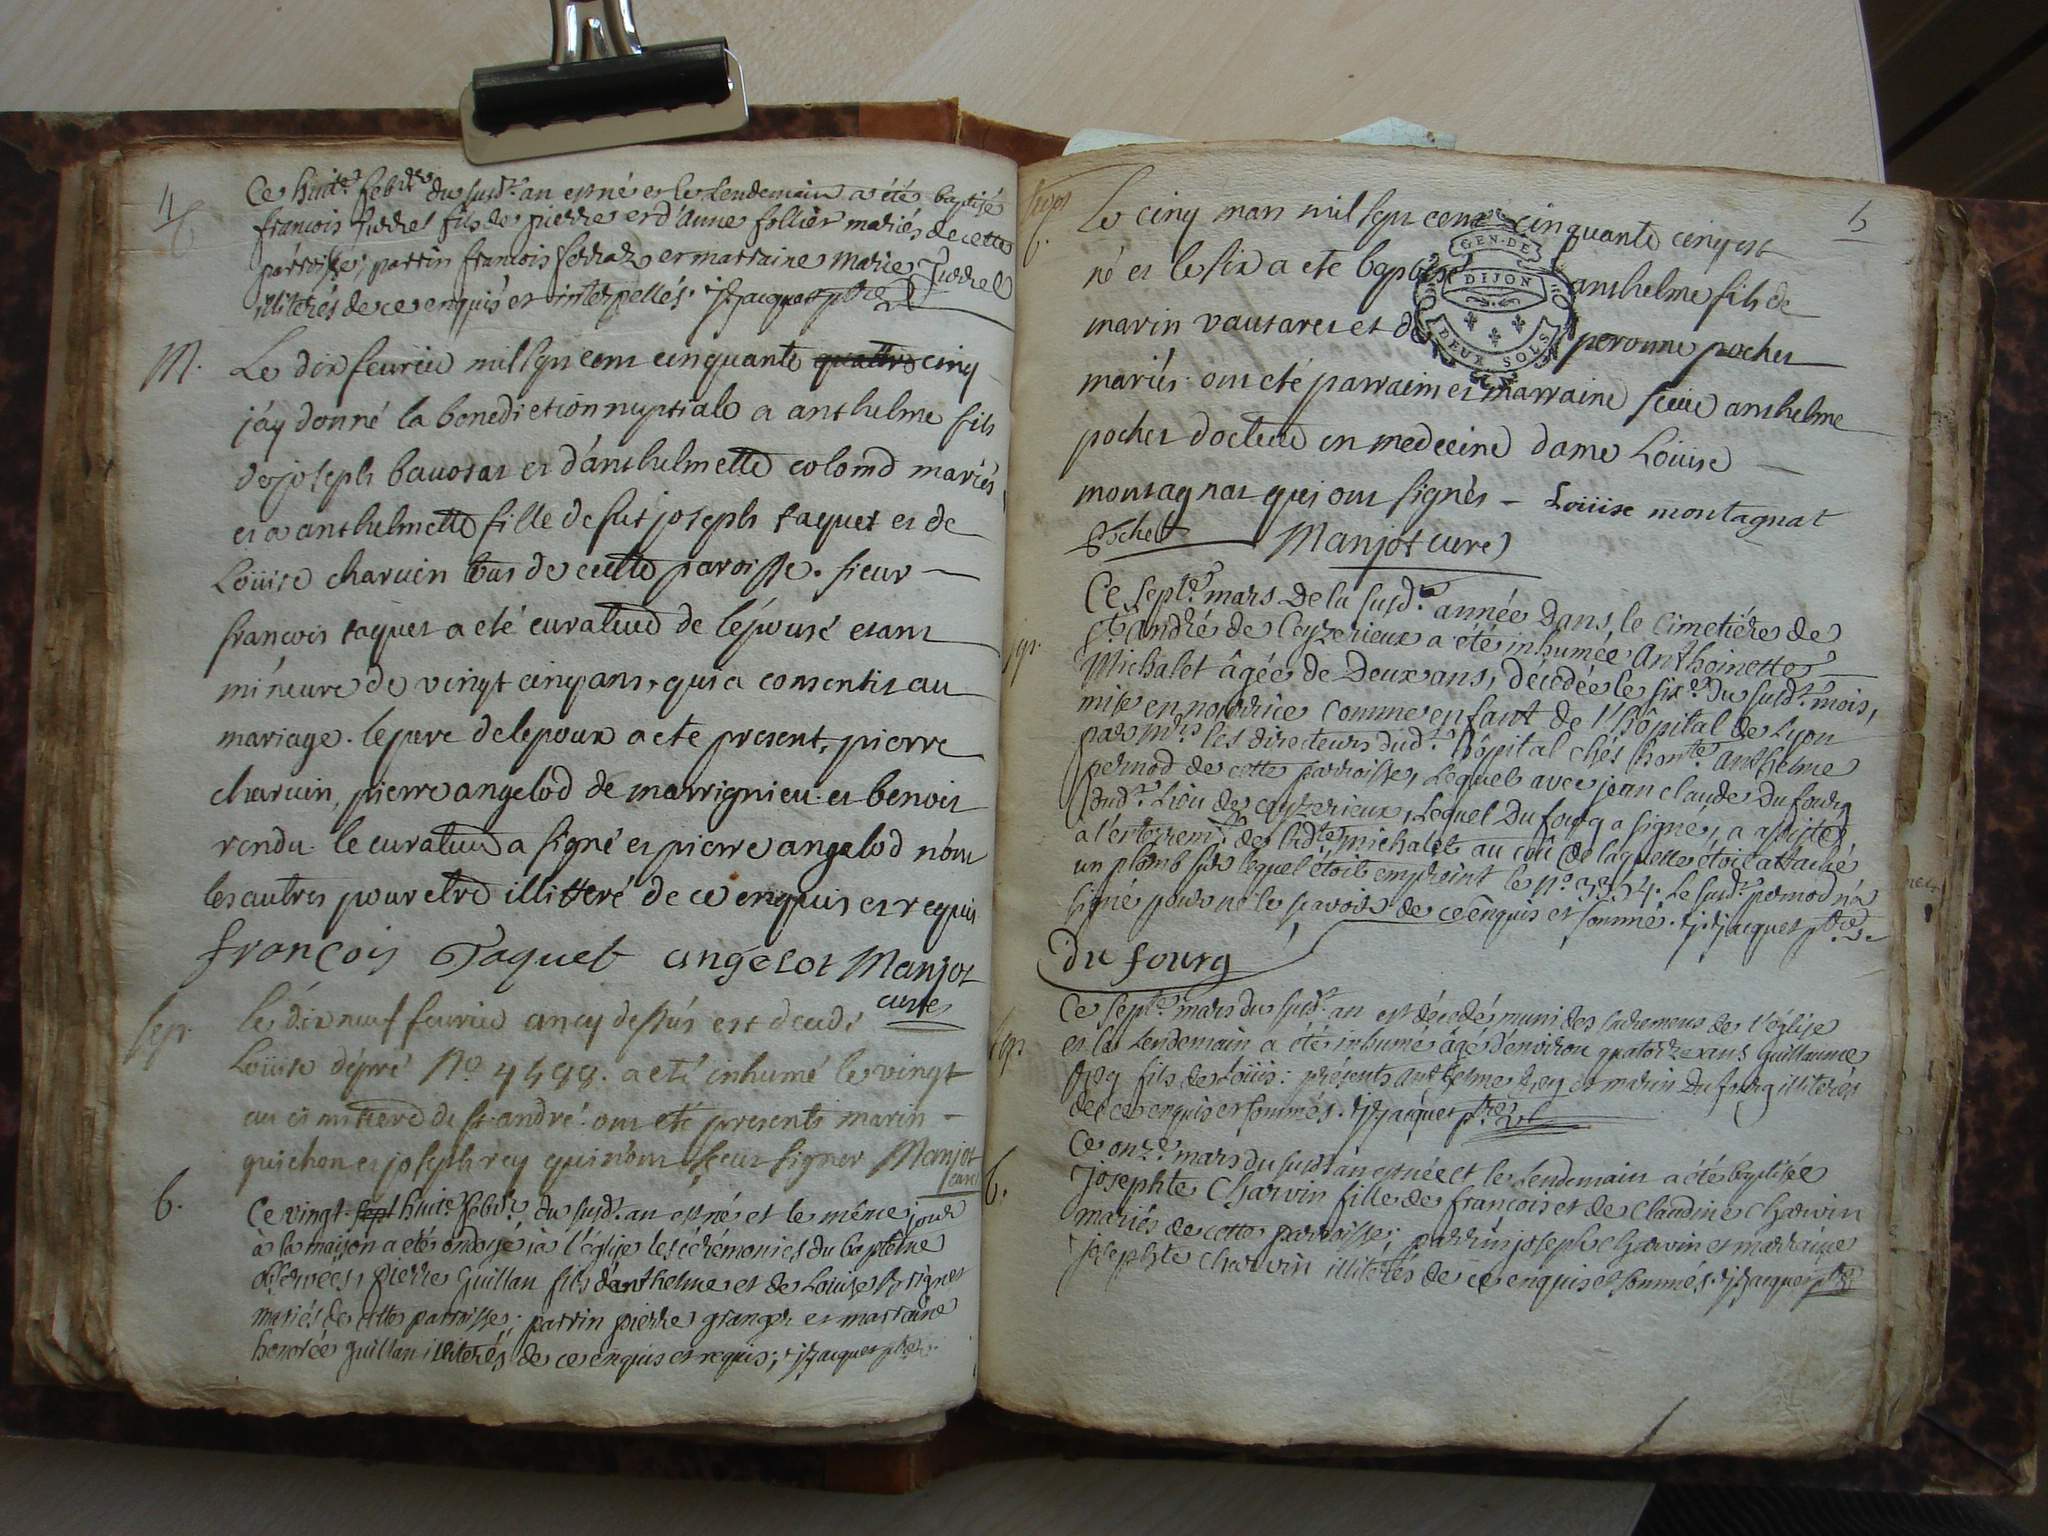 4
b
Ce huit.e febr.er du susd.t an est né et le lendemain a été baptisé
françois Jurrel fils de pierre et d'Anne follier mariés de cette
parroisse; parrin françois ferraz et marraine Marie Jurrel
illiterés de ce enquis et interpellés. jjacquet p.tre
M.
Le dix feuriéu mil sept cent cinquante quattre cinq
j'ay donné la benediction nuptiale a anthelme fils
de joseph bavosat et d'anthelmette colomd mariés
et a anthelmette fille de fut joseph taquet et de
Loüise charuin tous de cette paroisse. sieur
françois taquet a eté curateud de lépousé etant
mineure de vingt cinq ans, qui a consentit au
mariage. le pere de lepoux a ete present, pierre
charuin, pierre angelod de marrignieu et benoit
rendu. le curateud a signé et pierre angelod non
les autres pour etre illitteré de ce enquis et requis
françois Taquet angelot Manjot
curé
sep.
le dix neuf feuriéu an cy dessus est decedé
Loüise dépré N.o 4498. a eté inhumé le vingt
au cimitiere de st. andré. ont eté presents marin
guichon et joseph rey qui n'ont sceut signer Manjot
curé
b.
Ce vingt sept huit.e febr.er du susd.t an est né et le même jour
à la maison a eté ondoyé, à l'église les cérémonies du baptême
observées, pierre Guillan fils d'anthelme et de Louise
mariés de cette parroisse; parrin pierre granger et marraine
honorée guillan illiterés de ce enquis et requis; jjacquet p.tre
5
b.
Le cinq mars mil sept cent cinquante cinq est
né et le six a ete baptisé anthelme fils de
marin vautaret et de peronne pochet
mariés. ont eté parraim et marraine sieur anthelme
pochet docteud en medecine dame Loüise
montagnat qui ont signés - Loüise montagnat
Pochet Manjot curé
GEN. DE
DIJON
DEUX SOLS
sep.
Ce sept.e mars de la susd.e année dans le cimetiére de
st. andré de Ceyzerieux a été inhumée Anthoinette
Michalet âgée de deux ans, décédée le six.e du susd.t mois,
mise en nourrice comme enfant de l'hôpital de Lyon
par m.rs les directeurs dud.t hôpital chés hon.te Anthelme
pernod de cette parroisse, lequel avec jean claude Dufourg
dud.t Lieu de ceyzerieux, lequel Dufourg a signé, a assisté
à l'enterrem.t de lad.te michalet au coû de laquelle étoit attaché
un plomb sur lequel étoit empreint le n.o 3354. Le susd.t pernod n'a
signé pour ne le sçavoir de ce enquis et sommé. jjjacquet p.tre
du fourg
sep.
Ce sept.e mars du susd.t an est décedé muni des sacremens de l'église
et le lendemain a été inhumé âgé d'environ quatorze ans Guillaume
Rey fils de Loüis: présents anthelme Rey et marin Dufourg illiterés
de ce enquis et sommés. jjjacquet p.tre
b.
Ce onz.e mars du susd.t an est née et le lendemain a été baptisée
Josephte Charvin fille de françois et de Claudine Charvin
mariés de cette parroisse; parrin joseph charvin et marraine
josephte charvin illiterés de ce enquis et sommés. jjjacquet p.tre